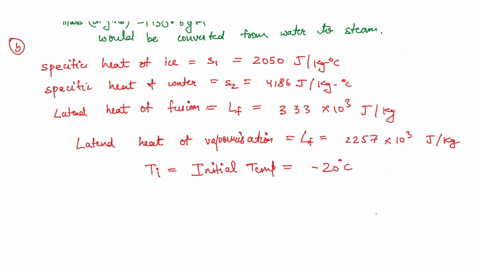 would be converted from water to steam.
(b)
specific heat of ice = s₁ = 2050 J/kg·°C
specific heat of water = s₂ = 4186 J/kg·°C
Latend heat of fusion = Lf = 333 × 10³ J/kg
Latend heat of vapourisation = Lf = 2257 × 10³ J/kg
Ti = Initial Temp = -20°C